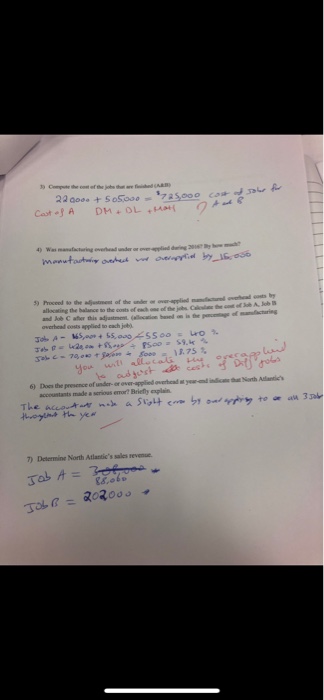 3) Compute the cost of the jobs that are finished (A&B)
220000 + 505,000 = $725,000 cost of jobs for
Cost of A DM + DL + MOH A and B
4) Was manufacturing overhead under or over-applied during 2016? By how much?
manufacturing overhead was overapplied by 15,000
5) Proceed to the adjustment of the under or over-applied manufactured overhead costs by
allocating the balance to the costs of each one of the jobs. Calculate the cost of Job A, Job B
and Job C after this adjustment. (allocation based on is the percentage of manufacturing
overhead costs applied to each job).
Job A - 165,000 + 55,000 5500 = 40 %
8500
Job C - 5000 18.75 %
You will allocate the overapplied
to adjust costs of Diff jobs
6) Does the presence of under- or over-applied overhead at year-end indicate that North Atlantic's
accountants made a serious error? Briefly explain.
The accountant made a slight error by overapplying to all 3 jobs
throughout the year
7) Determine North Atlantic's sales revenue.
Job A =
88,000
Job B = 202000